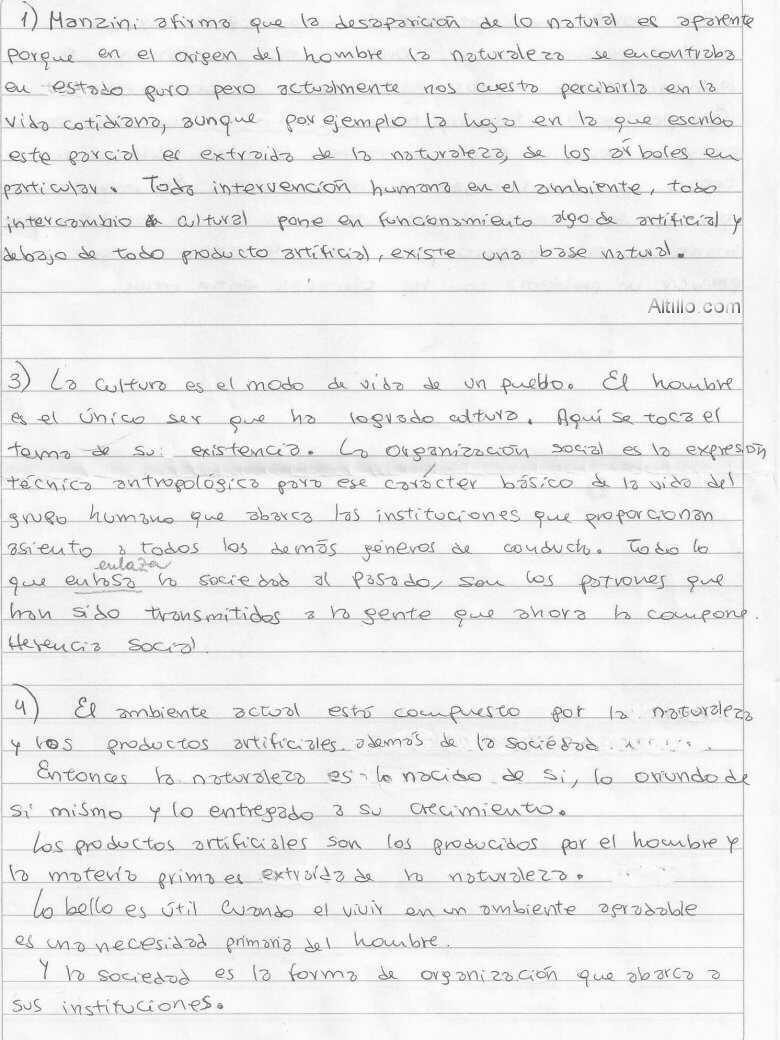 1) Manzini afirma que la desaparición de lo natural es aparente
porque en el origen del hombre la naturaleza se encontraba
en estado puro pero actualmente nos cuesta percibirla en la
vida cotidiana, aunque por ejemplo la hoja en la que escribo
este parcial es extraida de la naturaleza, de los árboles en
particular. Toda intervención humana en el ambiente, todo
intercambio cultural pone en funcionamiento algo de artificial y
debajo de todo producto artificial, existe una base natural.
Altillo.com
3) La cultura es el modo de vida de un pueblo. El hombre
es el único ser que ha logrado cultura. Aquí se toca el
tema de su existencia. La organización social es la expresión
técnica antropológica para ese carácter básico de la vida del
grupo humano que abarca las instituciones que proporcionan
asiento a todos los demás géneros de conducta. Todo lo
enlaza
que enlasa la sociedad al Pasado, son los patrones que
han sido transmitidos a la gente que ahora la compone.
Herencia Social.
4) El ambiente actual está compuesto por la naturaleza
y los productos artificiales además de la sociedad.
Entonces la naturaleza es lo nacido de si, lo oriundo de
si mismo y lo entregado a su crecimiento.
Los productos artificiales son los producidos por el hombre y
la materia prima es extraída de la naturaleza.
Lo bello es útil cuando el vivir en un ambiente agradable
es una necesidad primaria del hombre.
Y la sociedad es la forma de organización que abarca a
sus instituciones.